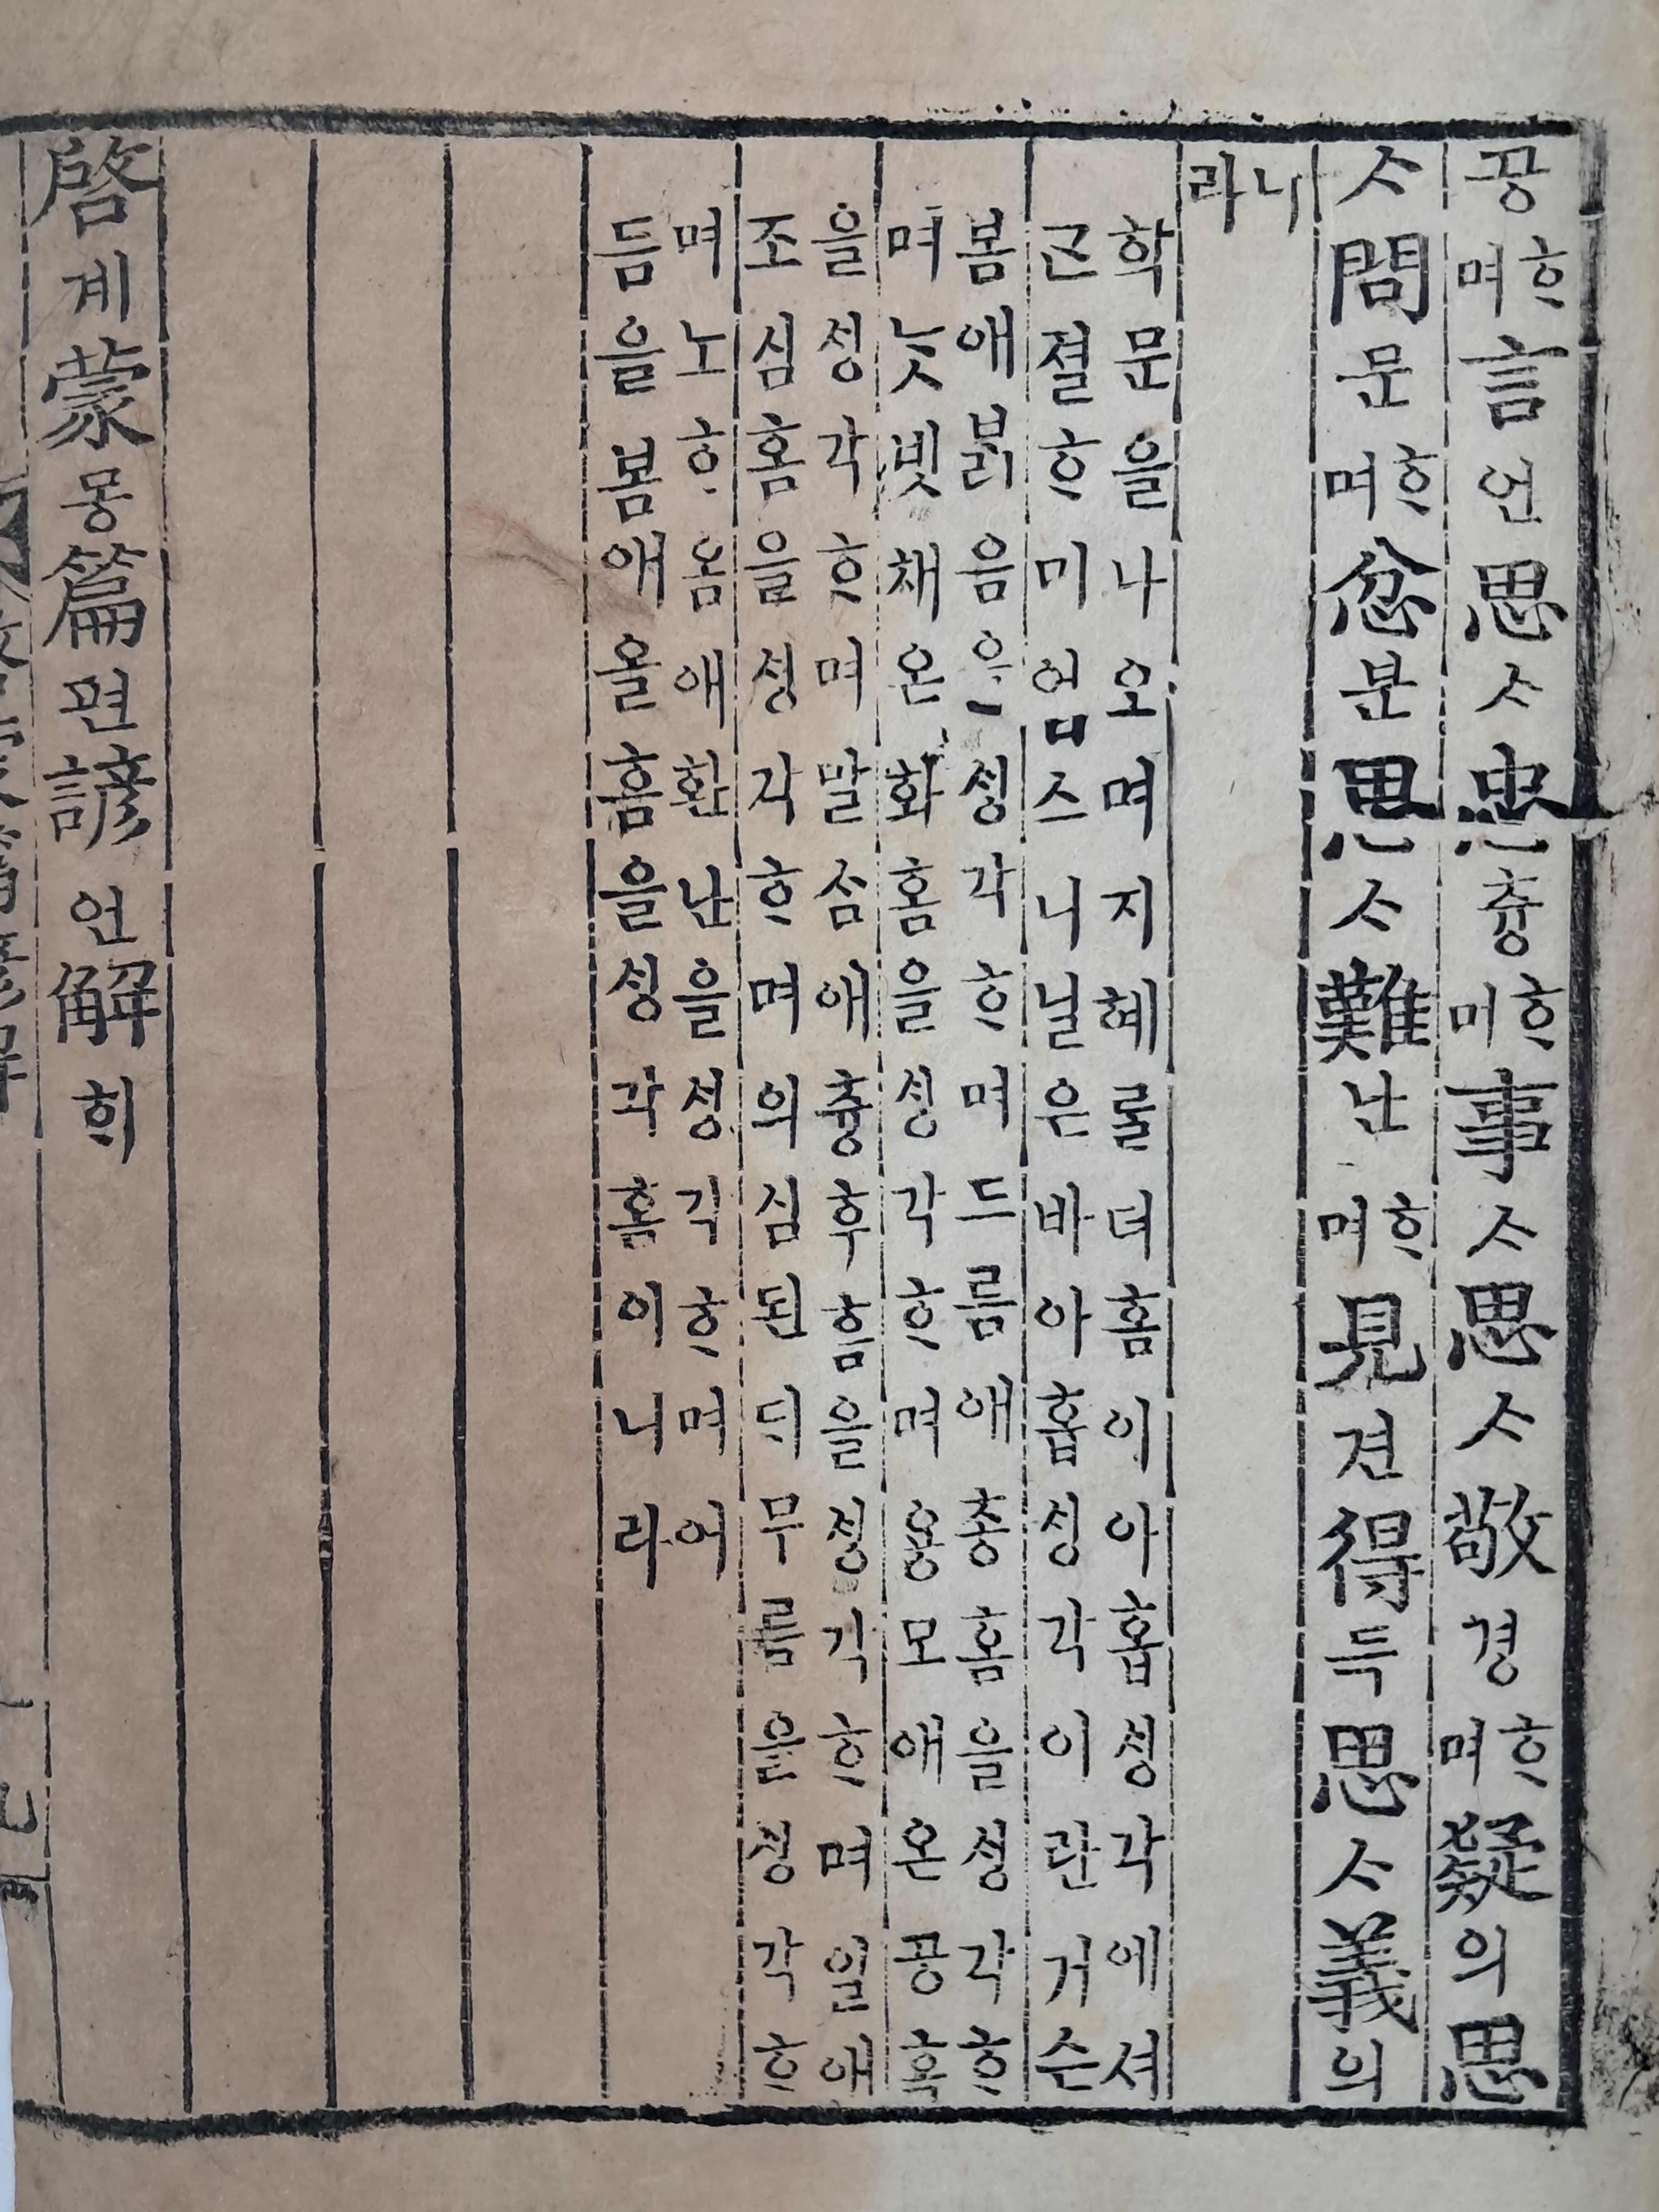 공ᄒᆞ며言언思ᄉᆞ忠츙ᄒᆞ며事ᄉᆞ思ᄉᆞ敬경ᄒᆞ며疑의思
ᄉᆞ問문ᄒᆞ며忿분思ᄉᆞ難난ᄒᆞ며見견得득思ᄉᆞ義의
니라
학문을나오며지혜ᄅᆞᆯ더ᄒᆞᆷ이아홉ᄉᆡᆼ각에셔
근졀ᄒᆞ미업스니닐은바아홉ᄉᆡᆼ각이란거슨
봄애ᄇᆞᆰ음ᄋᆞᆯᄉᆡᆼ각ᄒᆞ며드름애총ᄒᆞᆷ을ᄉᆡᆼ각ᄒᆞ
며ᄂᆞᆺ빗채온화ᄒᆞᆷ을ᄉᆡᆼ각ᄒᆞ며용모애온공ᄒᆞᆷ
을ᄉᆡᆼ각ᄒᆞ며말ᄉᆞᆷ애츙후ᄒᆞᆷ을ᄉᆡᆼ각ᄒᆞ며일애
조심ᄒᆞᆷ을ᄉᆡᆼ각ᄒᆞ며의심된ᄃᆡ무름을ᄉᆡᆼ각ᄒᆞ
며노ᄒᆞ옴애환난을ᄉᆡᆼ각ᄒᆞ며어
듬을봄애올흠을ᄉᆡᆼ각ᄒᆞᆷ이니라
啓계蒙몽篇편諺언解ᄒᆡ